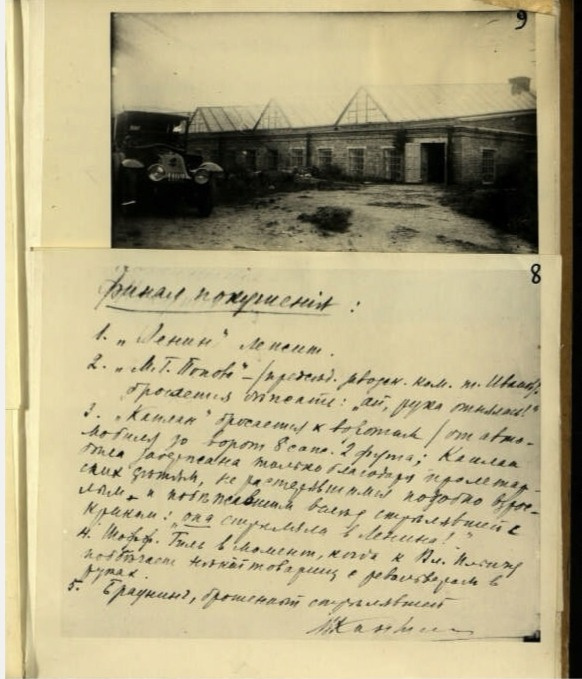 9
8
Финал покушенія:
1. „Ленин" лежит.
2. „М.Г. Попова" – (председ. заводск. ком. т. Иванов)
бросается бѣжать:
3. „Каплан" бросается к воротам (от авто-
мобиля до ворот 8 саж. 2 фута; Каплан
была задержана только благодаря пролетар-
ским дѣтям, не растерявшимся подобно взрос-
лым и побѣжавшим вслед стрелявшей с
криком: „она стреляла в Ленина!"
4. Шофф. Гиль в момент, когда к Вл. Ильичу
подбѣгает товарищ с револьвером в
руках.
5. Браунинг, брошенный стрелявшей